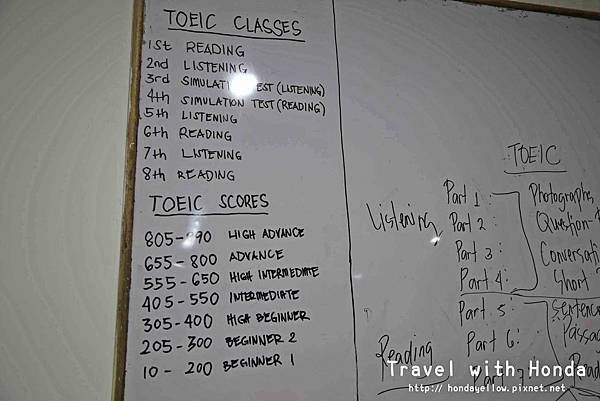 TOEIC CLASSES
1st READING
2nd LISTENING
3rd SIMULATION TEST (LISTENING)
4th SIMULATION TEST (READING)
5th LISTENING
6th READING
7th LISTENING
8th READING
TOEIC SCORES
805-990 HIGH ADVANCE
655-800 ADVANCE
555-650 HIGH INTERMEDIATE
405-550 INTERMEDIATE
305-400 HIGH BEGINNER
205-300 BEGINNER 2
10 - 200 BEGINNER 1
TOEIC
Listening
Part 1: Photographs
Part 2: Question
Part 3:
Part 4: Short
Reading
Part 5:
Part 6:
Travel with Honda
http://hondayellow.pixnet.net